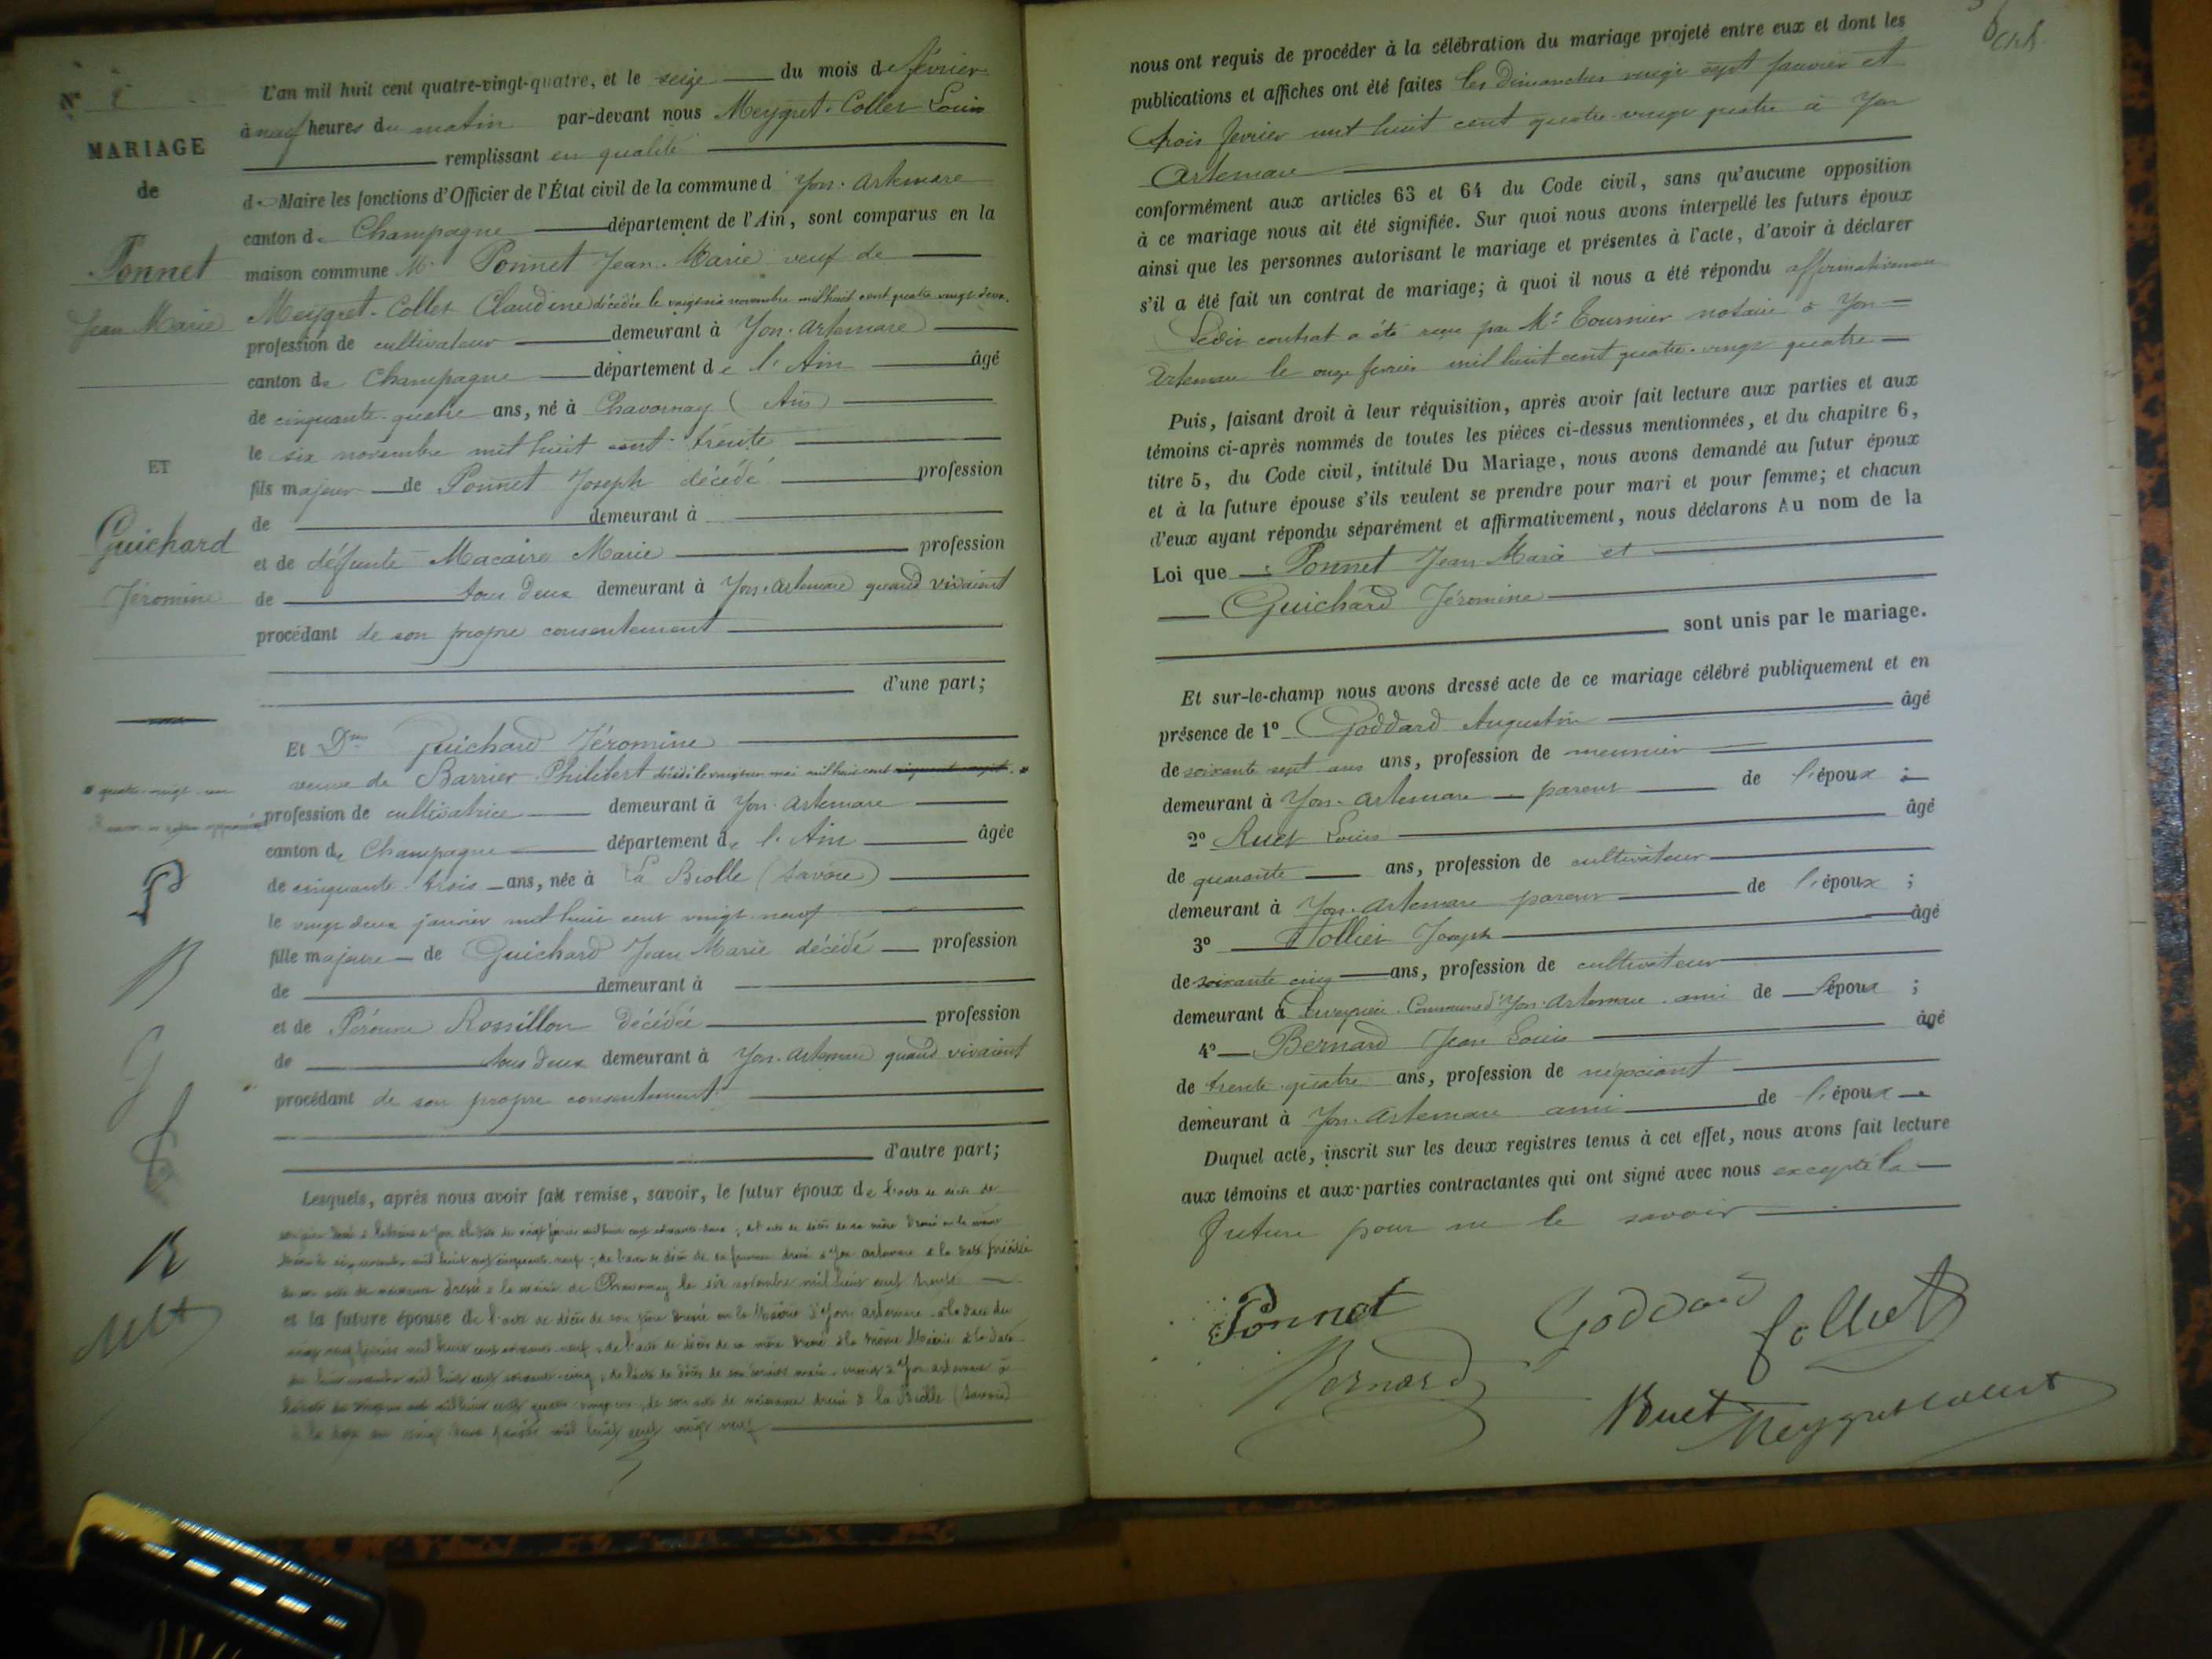 N°
MARIAGE
de
Ponnet
Jean Marie
ET
Guichard
Jéromine
L'an mil huit cent quatre-vingt-quatre, et le seize du mois de février
à neuf heures du matin par-devant nous Meygret-Collet Louis
remplissant en qualité
de Maire les fonctions d'Officier de l'État civil de la commune d'Yon-Artemare
canton de Champagne département de l'Ain, sont comparus en la
maison commune Mr Ponnet Jean-Marie veuf de
Meygret-Collet Claudine décédée le vingt six novembre mil huit cent quatre vingt deux.
profession de cultivateur demeurant à Yon-Artemare
canton de Champagne département de l'Ain âgé
de cinquante-quatre ans, né à Chavornay (Ain)
le six novembre mil huit cent trente
fils majeur de Ponnet Joseph décédé profession
de demeurant à
et de défunte Macaire Marie profession
de tous deux demeurant à Yon-Artemare quand vivaient
procédant de son propre consentement
d'une part;
Et Dme Guichard Jéromine
veuve de Barrier Philibert décédé le mai mil huit cent
quatre-vingt-un
profession de cultivatrice demeurant à Yon-Artemare
canton de Champagne département de l'Ain âgée
de cinquante-trois ans, née à La Biolle (Savoie)
le vingt deux janvier mil huit cent vingt-neuf
fille majeure de Guichard Jean Marie décédé profession
de demeurant à
et de Péronne Rossillon décédée profession
de tous deux demeurant à Yon-Artemare quand vivaient
procédant de son propre consentement
d'autre part;
Lesquels, après nous avoir fait remise, savoir, le futur époux de l'acte de décès de
son père dressé à la Mairie d'Yon ; de l'acte de décès de sa mère dressé en la même
mil huit cent cinquante-neuf ; de l'acte de décès de sa femme dressé à Yon Artemare à la date précitée
de son acte de naissance dressé à la mairie de Chavornay le six novembre mil huit cent trente
et la future épouse de l'acte de décès de son père dressé en la Mairie d'Yon Artemare à la date du
de l'acte de décès de sa mère dressé à la même Mairie à la date
mil huit cent soixante-cinq ; de l'acte de décès de son mari à Yon Artemare à
de son acte de naissance dressé à la Biolle (Savoie)
à la date du vingt deux janvier mil huit cent vingt neuf
nous ont requis de procéder à la célébration du mariage projeté entre eux et dont les
publications et affiches ont été faites les dimanches vingt sept janvier et
trois février mil huit cent quatre-vingt quatre à Yon
Artemare
conformément aux articles 63 et 64 du Code civil, sans qu'aucune opposition
à ce mariage nous ait été signifiée. Sur quoi nous avons interpellé les futurs époux
ainsi que les personnes autorisant le mariage et présentes à l'acte, d'avoir à déclarer
s'il a été fait un contrat de mariage; à quoi il nous a été répondu affirmativement
Ledit contrat a été reçu par Me Tournier notaire à Yon-
Artemare le onze février mil huit cent quatre-vingt quatre
Puis, faisant droit à leur réquisition, après avoir fait lecture aux parties et aux
témoins ci-après nommés de toutes les pièces ci-dessus mentionnées, et du chapitre 6,
titre 5, du Code civil, intitulé Du Mariage, nous avons demandé au futur époux
et à la future épouse s'ils veulent se prendre pour mari et pour femme; et chacun
d'eux ayant répondu séparément et affirmativement, nous déclarons Au nom de la
Loi que Ponnet Jean Marie et
Guichard Jéromine
sont unis par le mariage.
Et sur-le-champ nous avons dressé acte de ce mariage célébré publiquement et en
présence de 1° Goddard Augustin âgé
de soixante sept ans ans, profession de meunier
demeurant à Yon-Artemare parent de l'époux ;
2° Ruet Louis âgé
de quarante ans, profession de cultivateur
demeurant à Yon-Artemare parent de l'époux ;
3° Tollier Joseph âgé
de soixante cinq ans, profession de cultivateur
demeurant à Commune d'Yon-Artemare ami de l'époux ;
4° Bernard Jean Louis âgé
de trente-quatre ans, profession de négociant
demeurant à Yon-Artemare ami de l'époux
Duquel acte, inscrit sur les deux registres tenus à cet effet, nous avons fait lecture
aux témoins et aux parties contractantes qui ont signé avec nous excepté la
future pour ne le savoir
Ponnet Goddard Tolliet
Bernard Ruet Meygret Collet